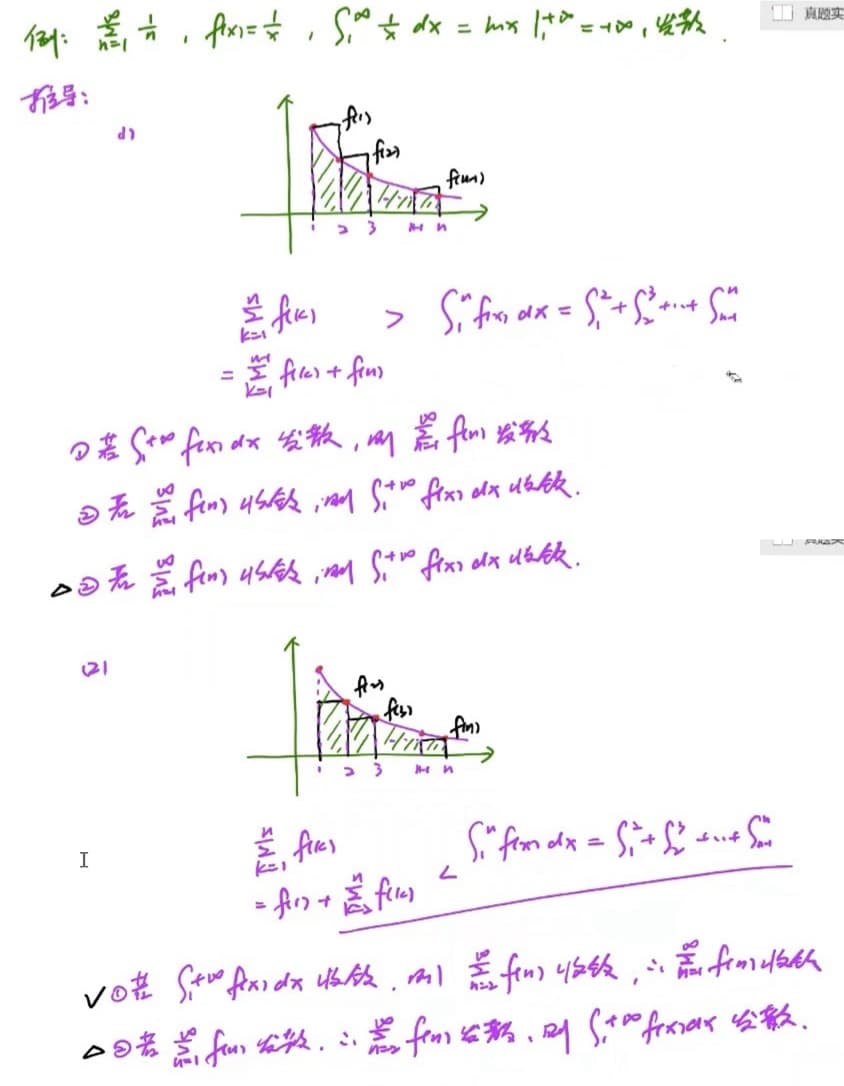 真题实
例: ∑_{n=1}^{∞} 1/n , f(x)=1/x , ∫_1^{∞} 1/x dx = lnx |_1^{+∞} = +∞, 发散.
推导:
(1)
f(1)
f(2)
f(n-1)
1 2 3 n-1 n
∑_{k=1}^{n} f(k) > ∫_1^n f(x) dx = ∫_1^2 + ∫_2^3 +...+ ∫_{n-1}^n
= ∑_{k=1}^{n-1} f(k) + f(n)
① 若 ∫_1^{+∞} f(x) dx 发散, 则 ∑_{n=1}^{∞} f(n) 发散
② 若 ∑_{n=1}^{∞} f(n) 收敛, 则 ∫_1^{+∞} f(x) dx 收敛.
△ ② 若 ∑_{n=1}^{∞} f(n) 收敛, 则 ∫_1^{+∞} f(x) dx 收敛.
(2)
f(2)
f(3)
f(n)
1 2 3 n-1 n
∑_{k=1}^{n} f(k)
= f(1) + ∑_{k=2}^{n} f(k) < ∫_1^n f(x) dx = ∫_1^2 + ∫_2^3 +...+ ∫_{n-1}^n
✓ ① 若 ∫_1^{+∞} f(x) dx 收敛. 则 ∑_{n=2}^{∞} f(n) 收敛, ∴ ∑_{n=1}^{∞} f(n) 收敛
△ ② 若 ∑_{n=1}^{∞} f(n) 发散. ∴ ∑_{n=2}^{∞} f(n) 发散, 则 ∫_1^{+∞} f(x) dx 发散.